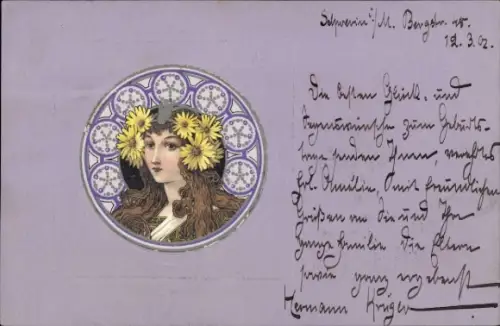 Schwerin i/M. Bergstr. 
12.3.02.
Die besten Glück- und
Segenswünsche zum Geburts-
tage senden Ihnen verehrtes
Frl. mit freundlichen
Grüßen an Sie und Ihre
ganze Familie die Eltern
sowie ganz ergebenst
Hermann Krüger